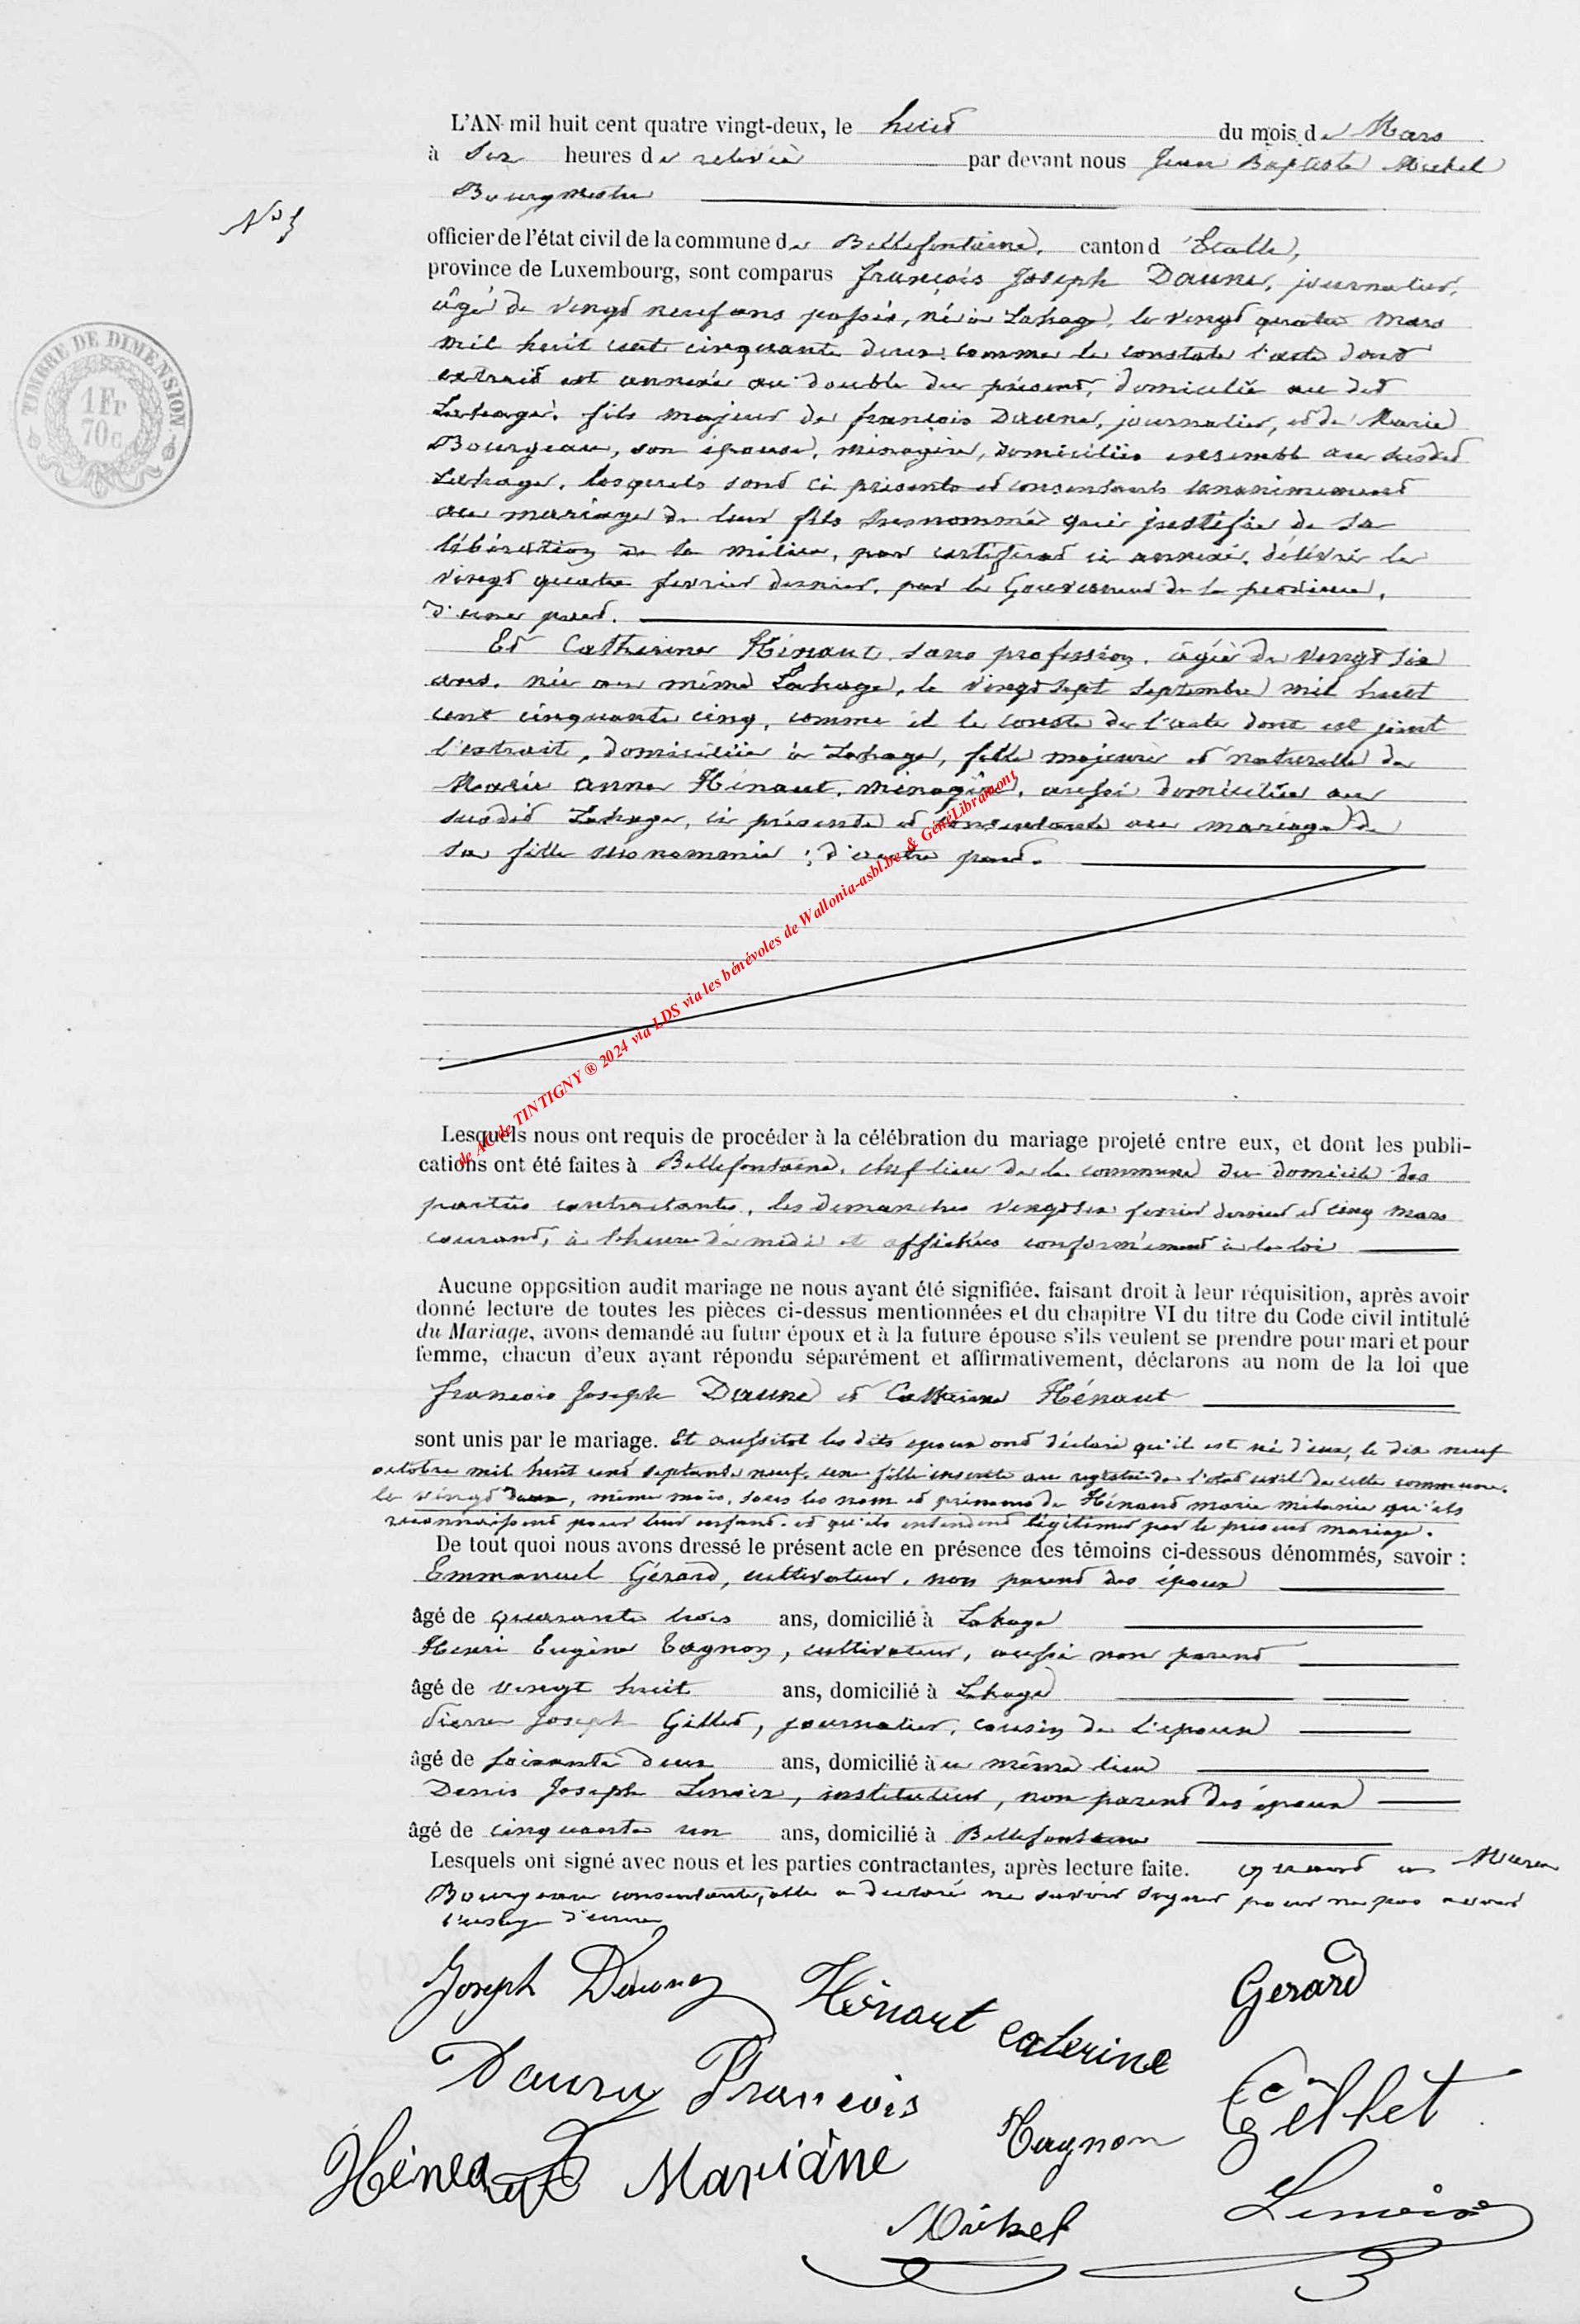 L'AN mil huit cent quatre vingt-deux, le huit du mois de Mars
à six heures de relevée par devant nous Jean Baptiste Michel
Bourgmestre
officier de l'état civil de la commune de Bellefontaine, canton d'Etalle,
province de Luxembourg, sont comparus François Joseph Daune, journalier,
âgé de vingt neuf ans passés, né à Lahage, le vingt quatre mars
mil huit cent cinquante deux comme le constate l'acte dont
extrait est annexé au double du présent, domicilié au dit
Lahage, fils majeur de françois Daune, journalier, et de Marie
Bourgeau, son épouse, ménagère, domiciliés ensemble au susdit
Lahage, lesquels sont ci présents et consentants unanimement
au mariage de leur fils susnommé qui justifie de sa
libération de la milice, par certificat ci annexé, délivré le
vingt quatre fevrier dernier, par le Gouverneur de la province,
d'une part.
Et Catherine Hénaut, sans profession, âgée de vingt six
ans, née au même Lahage, le vingt sept septembre mil huit
cent cinquante cinq, comme il le conste de l'acte dont est joint
l'extrait, domiciliée à Lahage, fille majeure et naturelle de
Marie Anne Hénaut, ménagère, aussi domiciliée au
susdit Lahage, ci présente et consentante au mariage de
sa fille susnommée ; d'autre part.
Lesquels nous ont requis de procéder à la célébration du mariage projeté entre eux, et dont les publi-
cations ont été faites à Bellefontaine, chef lieu de la commune du domicile des
parties contractantes, les dimanches vingt six fevrier dernier et cinq mars
courant, à l'heure de midi et affichées conformément à la loi
Aucune opposition audit mariage ne nous ayant été signifiée, faisant droit à leur réquisition, après avoir
donné lecture de toutes les pièces ci-dessus mentionnées et du chapitre VI du titre du Code civil intitulé
du Mariage, avons demandé au futur époux et à la future épouse s'ils veulent se prendre pour mari et pour
femme, chacun d'eux ayant répondu séparément et affirmativement, déclarons au nom de la loi que
françois Joseph Daune et Catherine Hénaut
sont unis par le mariage. Et aussitot les dits epoux ont déclaré qu'il est né d'eux, le dix neuf
octobre mil huit cent septante neuf, une fille inscrite au registre de l'état civil de cette commune,
le vingt deux, même mois, sous les nom et prénoms de Hénaut marie mélanie qu'ils
reconnaissent pour leur enfant, et qu'ils entendent légitimer par le présent mariage.
De tout quoi nous avons dressé le présent acte en présence des témoins ci-dessous dénommés, savoir :
Emmanuel Gérard, cultivateur, non parent des époux
âgé de quarante trois ans, domicilié à Lahage
Henri Eugène Tagnon, cultivateur, aussi non parent
âgé de vingt huit ans, domicilié à Lahage
Pierre Joseph Gillet, journalier, cousin de l'époux
âgé de soixante deux ans, domicilié au même lieu
Denis Joseph Lenoir, instituteur, non parent des époux
âgé de cinquante un ans, domicilié à Bellefontaine
Lesquels ont signé avec nous et les parties contractantes, après lecture faite. quant à Marie
Bourgeau consentante, elle a déclaré ne savoir signer pour ne pas avoir
l'usage d'écrire
Joseph Daune Hénaut caterine Gerard
Daune François Tagnon Gillet
Hénaut Mariane Lenoir
Michel
TIMBRE DE DIMENSION
1 Fr
70 c
de AC de TINTIGNY ® 2024 via LDS via les bénévoles de Wallonia-asbl.be & GénéLibramont